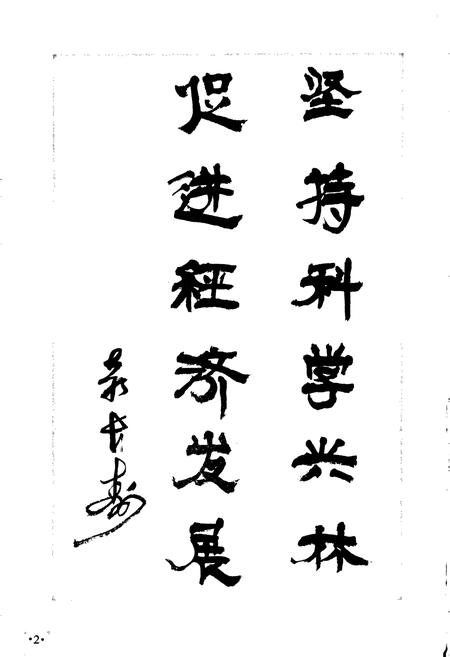 坚持科学兴林
促进经济发展
·2·